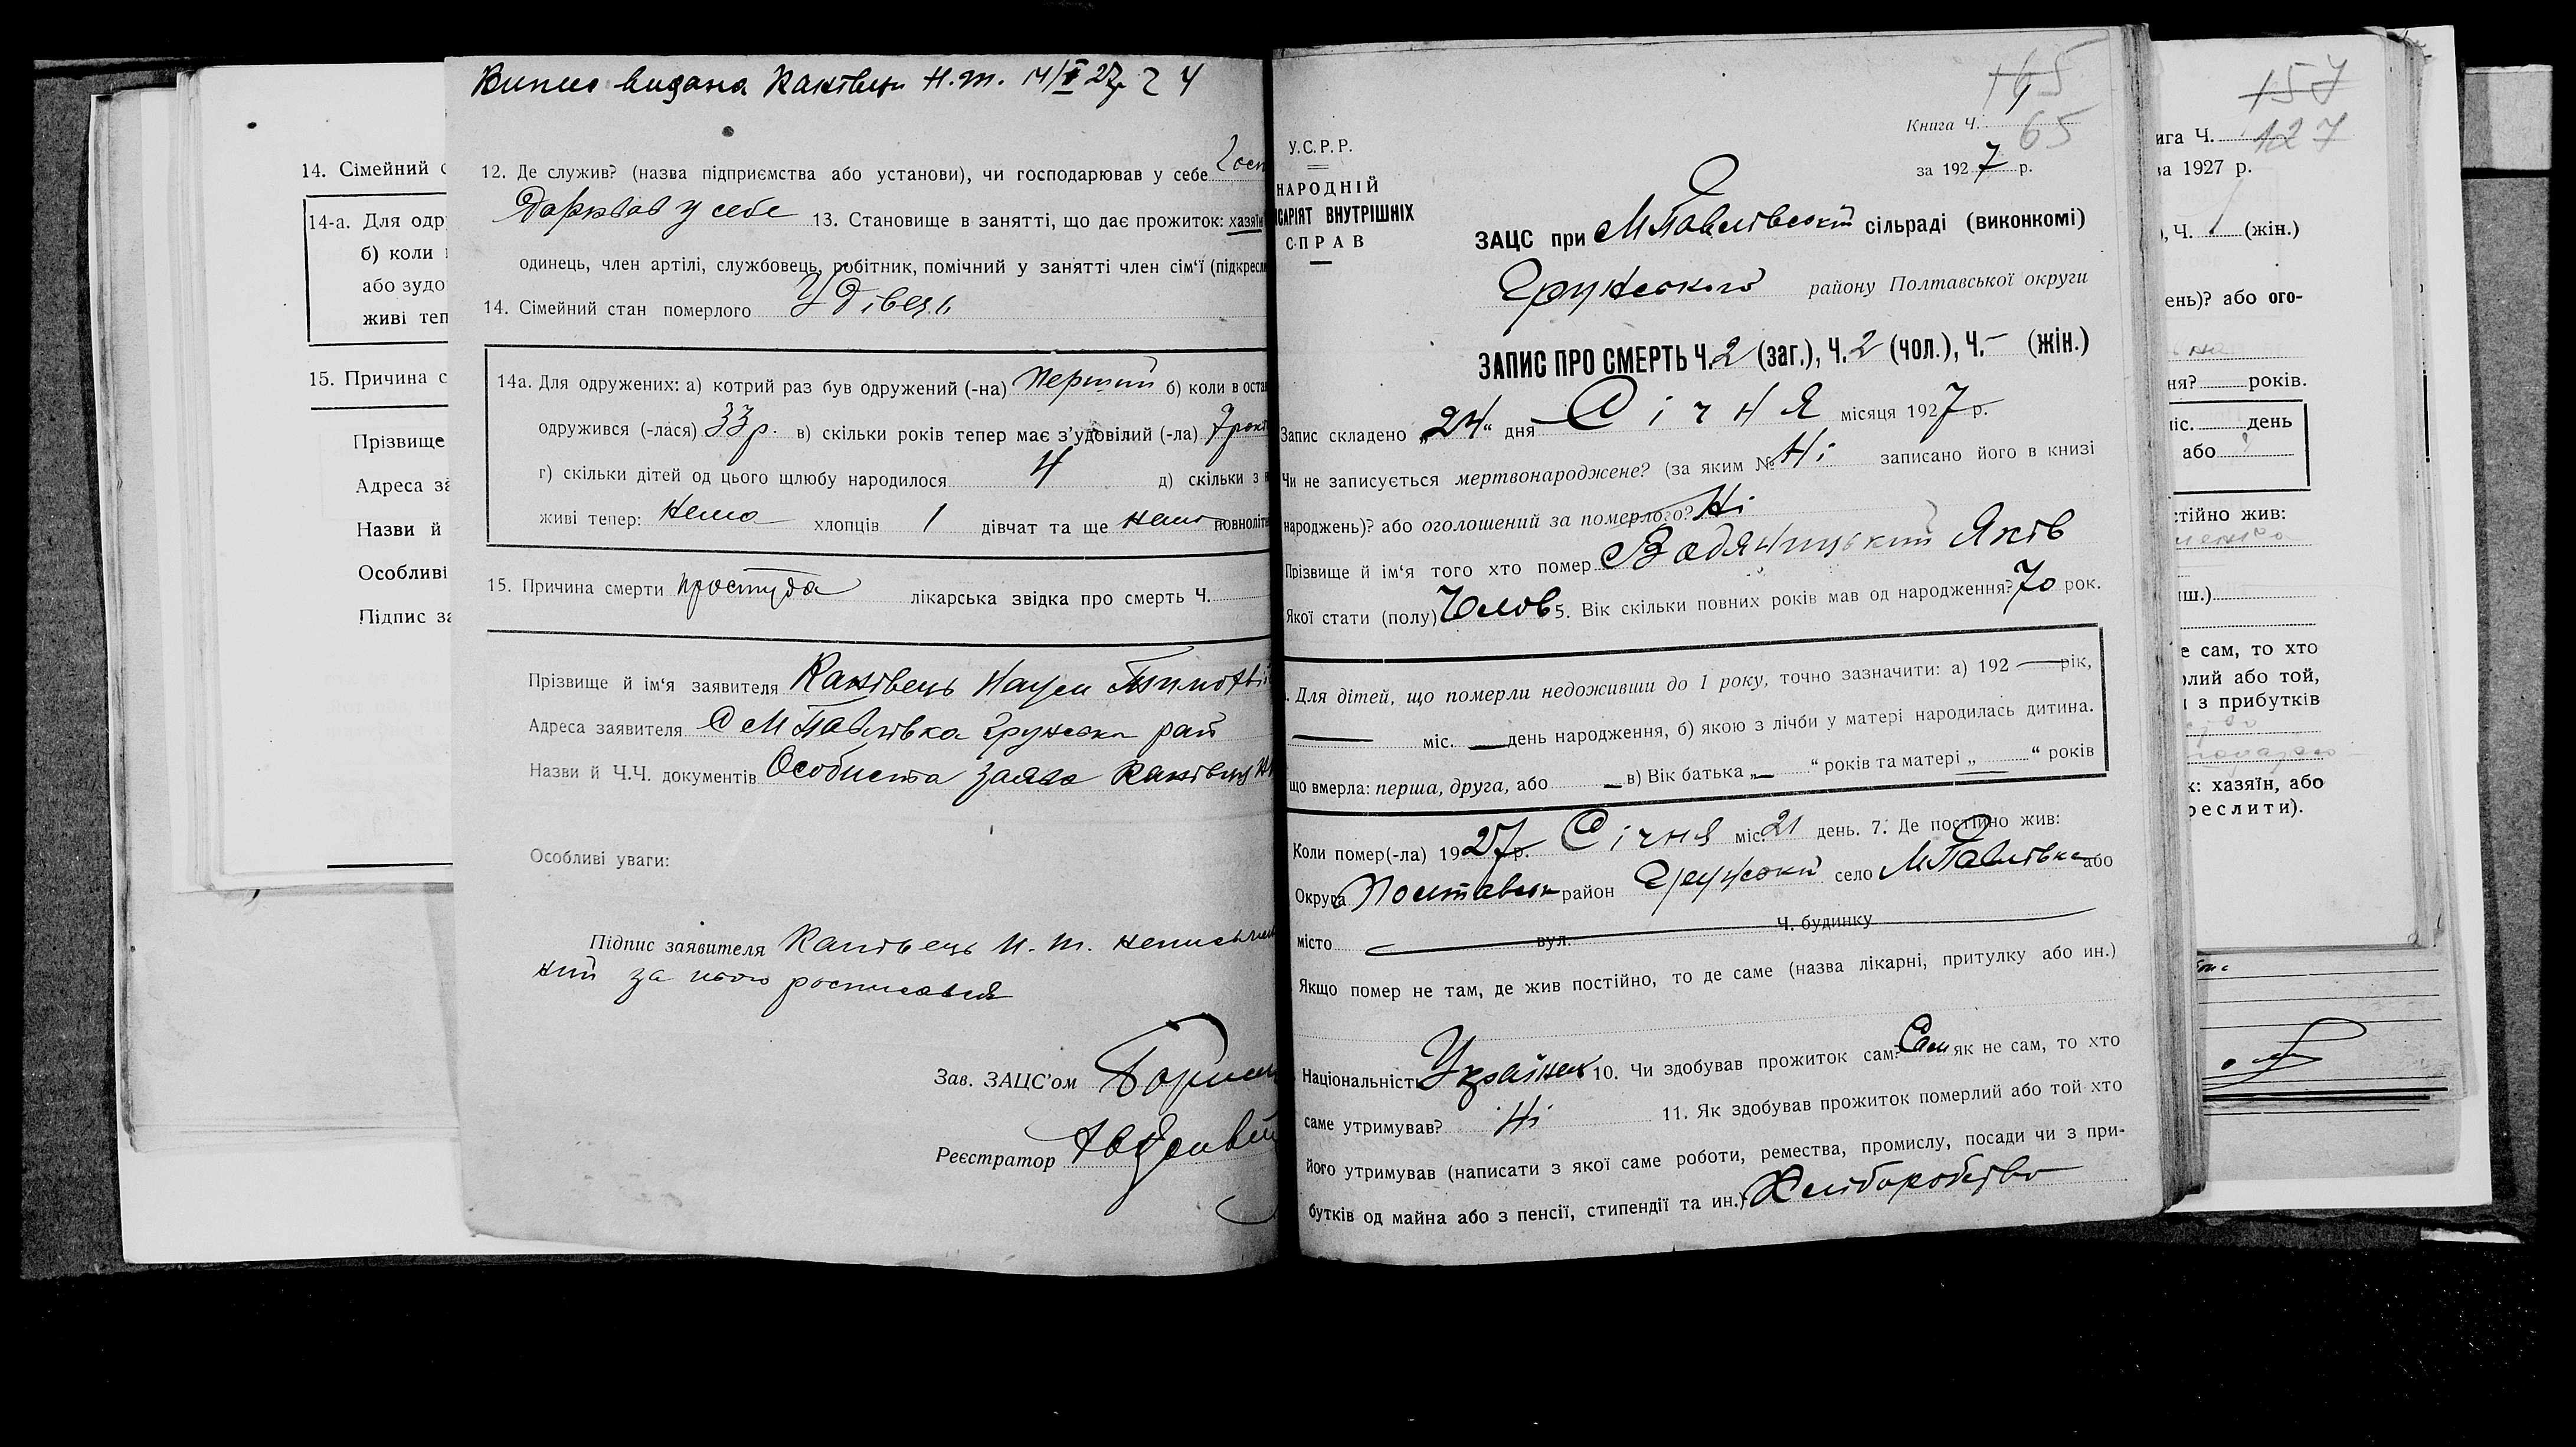 14. Сімейний с
14-а. Для одр
б) коли
або зудо
живі теп
15. Причина с
Прізвище
Адреса за
Назви й
Особливі
Підпис за
Випис видана Канівцю Н. Т. 14/ 27р. Ч 4
12. Де служив? (назва підприємства або установи), чи господарював у себе Госп
дарював у себе 13. Становище в занятті, що дає прожиток: хазяїн
одинець, член артілі, службовець, робітник, помічний у занятті член сім'ї (підкресл
14. Сімейний стан померлого Удівець
14а. Для одружених: а) котрий раз був одружений (-на) Перший б) коли в оста
одружився (-лася) 33 р. в) скільки років тепер має з'удовілий (-ла) 7 рокі
г) скільки дітей од цього щлюбу народилося 4 д) скільки з
живі тепер: Нема хлопців 1 дівчат та ще нема повноліт
15. Причина смерти простуда лікарська звідка про смерть Ч.
Прізвище й ім'я заявителя Канівець Наум Тимофі
Адреса заявителя С М Павлівка Грунськ рай
Назви й Ч.Ч. документів Особиста заява Канівця Н
Особливі уваги:
Підпис заявителя Канівець Н. Т. неписьмен
ний за його росписався
Зав. ЗАЦС'ом
Реєстратор
165
Книга Ч. 65
за 1927 р.
У.С.Р.Р.
НАРОДНІЙ
ІСАРІЯТ ВНУТРІШНІХ
СПРАВ
ЗАЦС при М Павлівській сільраді (виконкомі)
Грунського району Полтавської округи
ЗАПИС ПРО СМЕРТЬ Ч. 2 (заг.), Ч. 2 (чол.), Ч. – (жін.)
Запис складено „24“ дня Січня місяця 1927 р.
Чи не записується мертвонароджене? (за яким № Ні записано його в книзі
народжень)? або оголошений за померлого? Ні
Прізвище й ім'я того хто помер Водяницький Яків
Якої стати (полу) Чолов 5. Вік скільки повних років мав од народження? 70 рок.
. Для дітей, що померли недоживши до 1 року, точно зазначити: а) 192 — рік,
— міс. — день народження, б) якою з лічби у матері народилась дитина.
що вмерла: перша, друга, або — в) Вік батька „— “ років та матері „— “ років
Коли помер(-ла) 1927 р. Січня міс. 21 день. 7. Де постійно жив:
Округа Полтавськ район Грунський село М Павлівка або
місто вул. Ч. будинку
Якщо помер не там, де жив постійно, то де саме (назва лікарні, притулку або ин.)
Національність Українец 10. Чи здобував прожиток сам? Сам як не сам, то хто
саме утримував? Ні 11. Як здобував прожиток померлий або той хто
його утримував (написати з якої саме роботи, ремества, промислу, посади чи з при-
бутків од майна або з пенсії, стипендії та ин.) Хліборобство
157
ига Ч. 127
за 1927 р.
), Ч. 1 (жін.)
ень)? або ого-
ня? років.
міс. день
або
стійно жив:
иш.)
е сам, то хто
рлий або той,
и з прибутків
к: хазяїн, або
реслити).